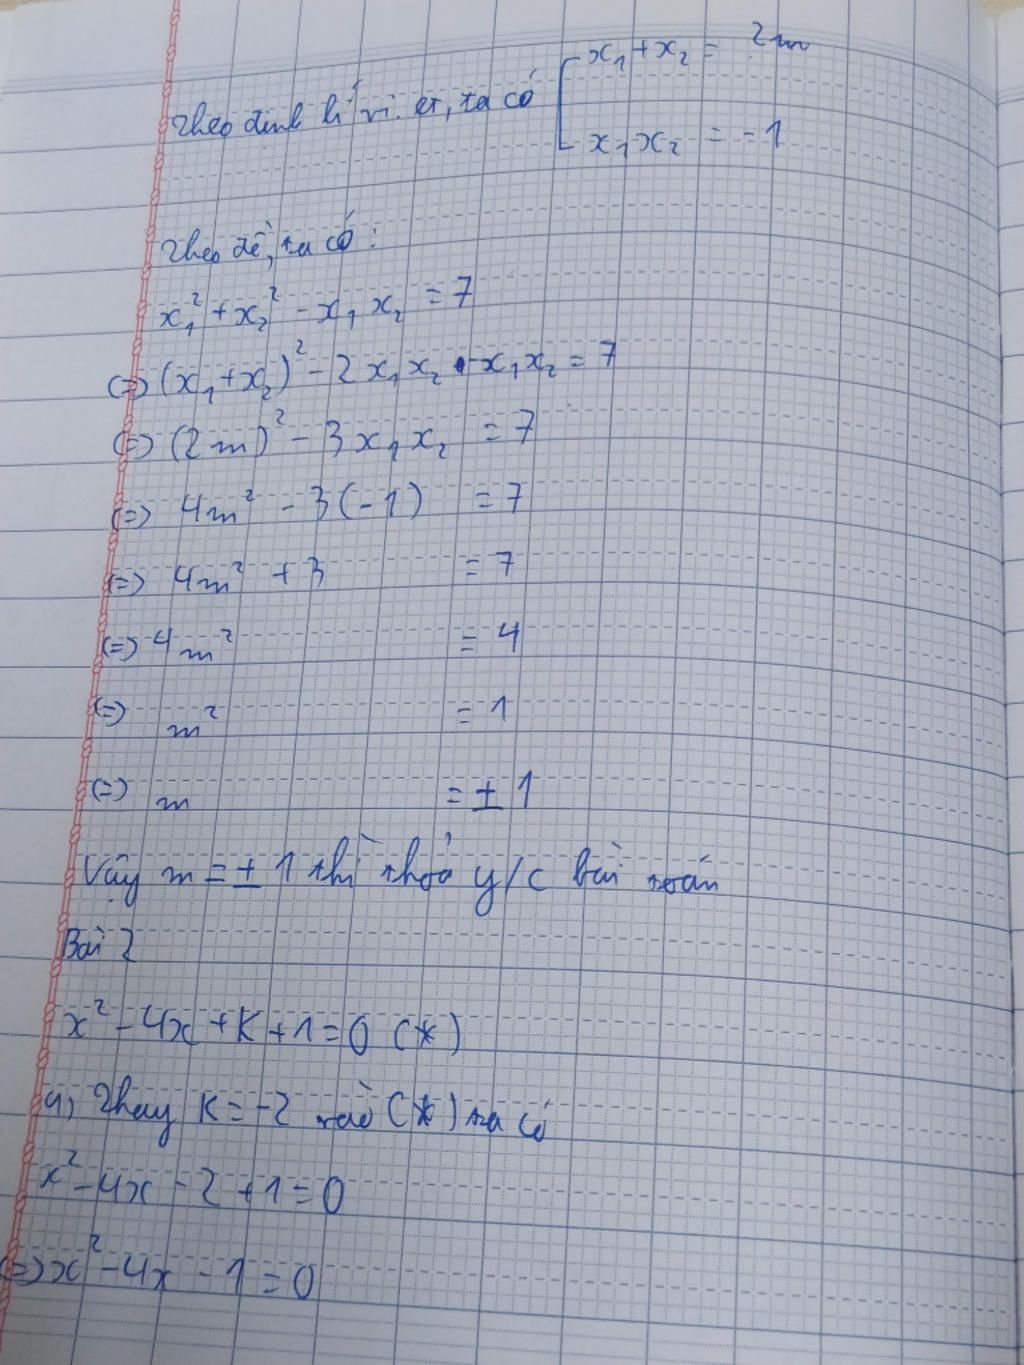 Theo định lí vi.et, ta có [ x₁ + x₂ = 2m
x₁x₂ = -1
Theo đề, ta có:
x₁² + x₂² - x₁x₂ = 7
(=) (x₁ + x₂)² - 2x₁x₂ - x₁x₂ = 7
(=) (2m)² - 3x₁x₂ = 7
(=) 4m² - 3(-1) = 7
(=) 4m² + 3 = 7
(=) 4m² = 4
(=) m² = 1
(=) m = ± 1
Vậy m = ± 1 thì thoả y/c bài toán
Bài 2
x² - 4x + K + 1 = 0 (*)
a, Thay K = -2 vào (*) ta có
x² - 4x - 2 + 1 = 0
(=) x² - 4x - 1 = 0